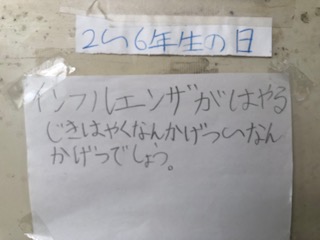 2〜6年生の日
インフルエンザがはやる
じきはやくなんかげつ〜なん
かげつでしょう。